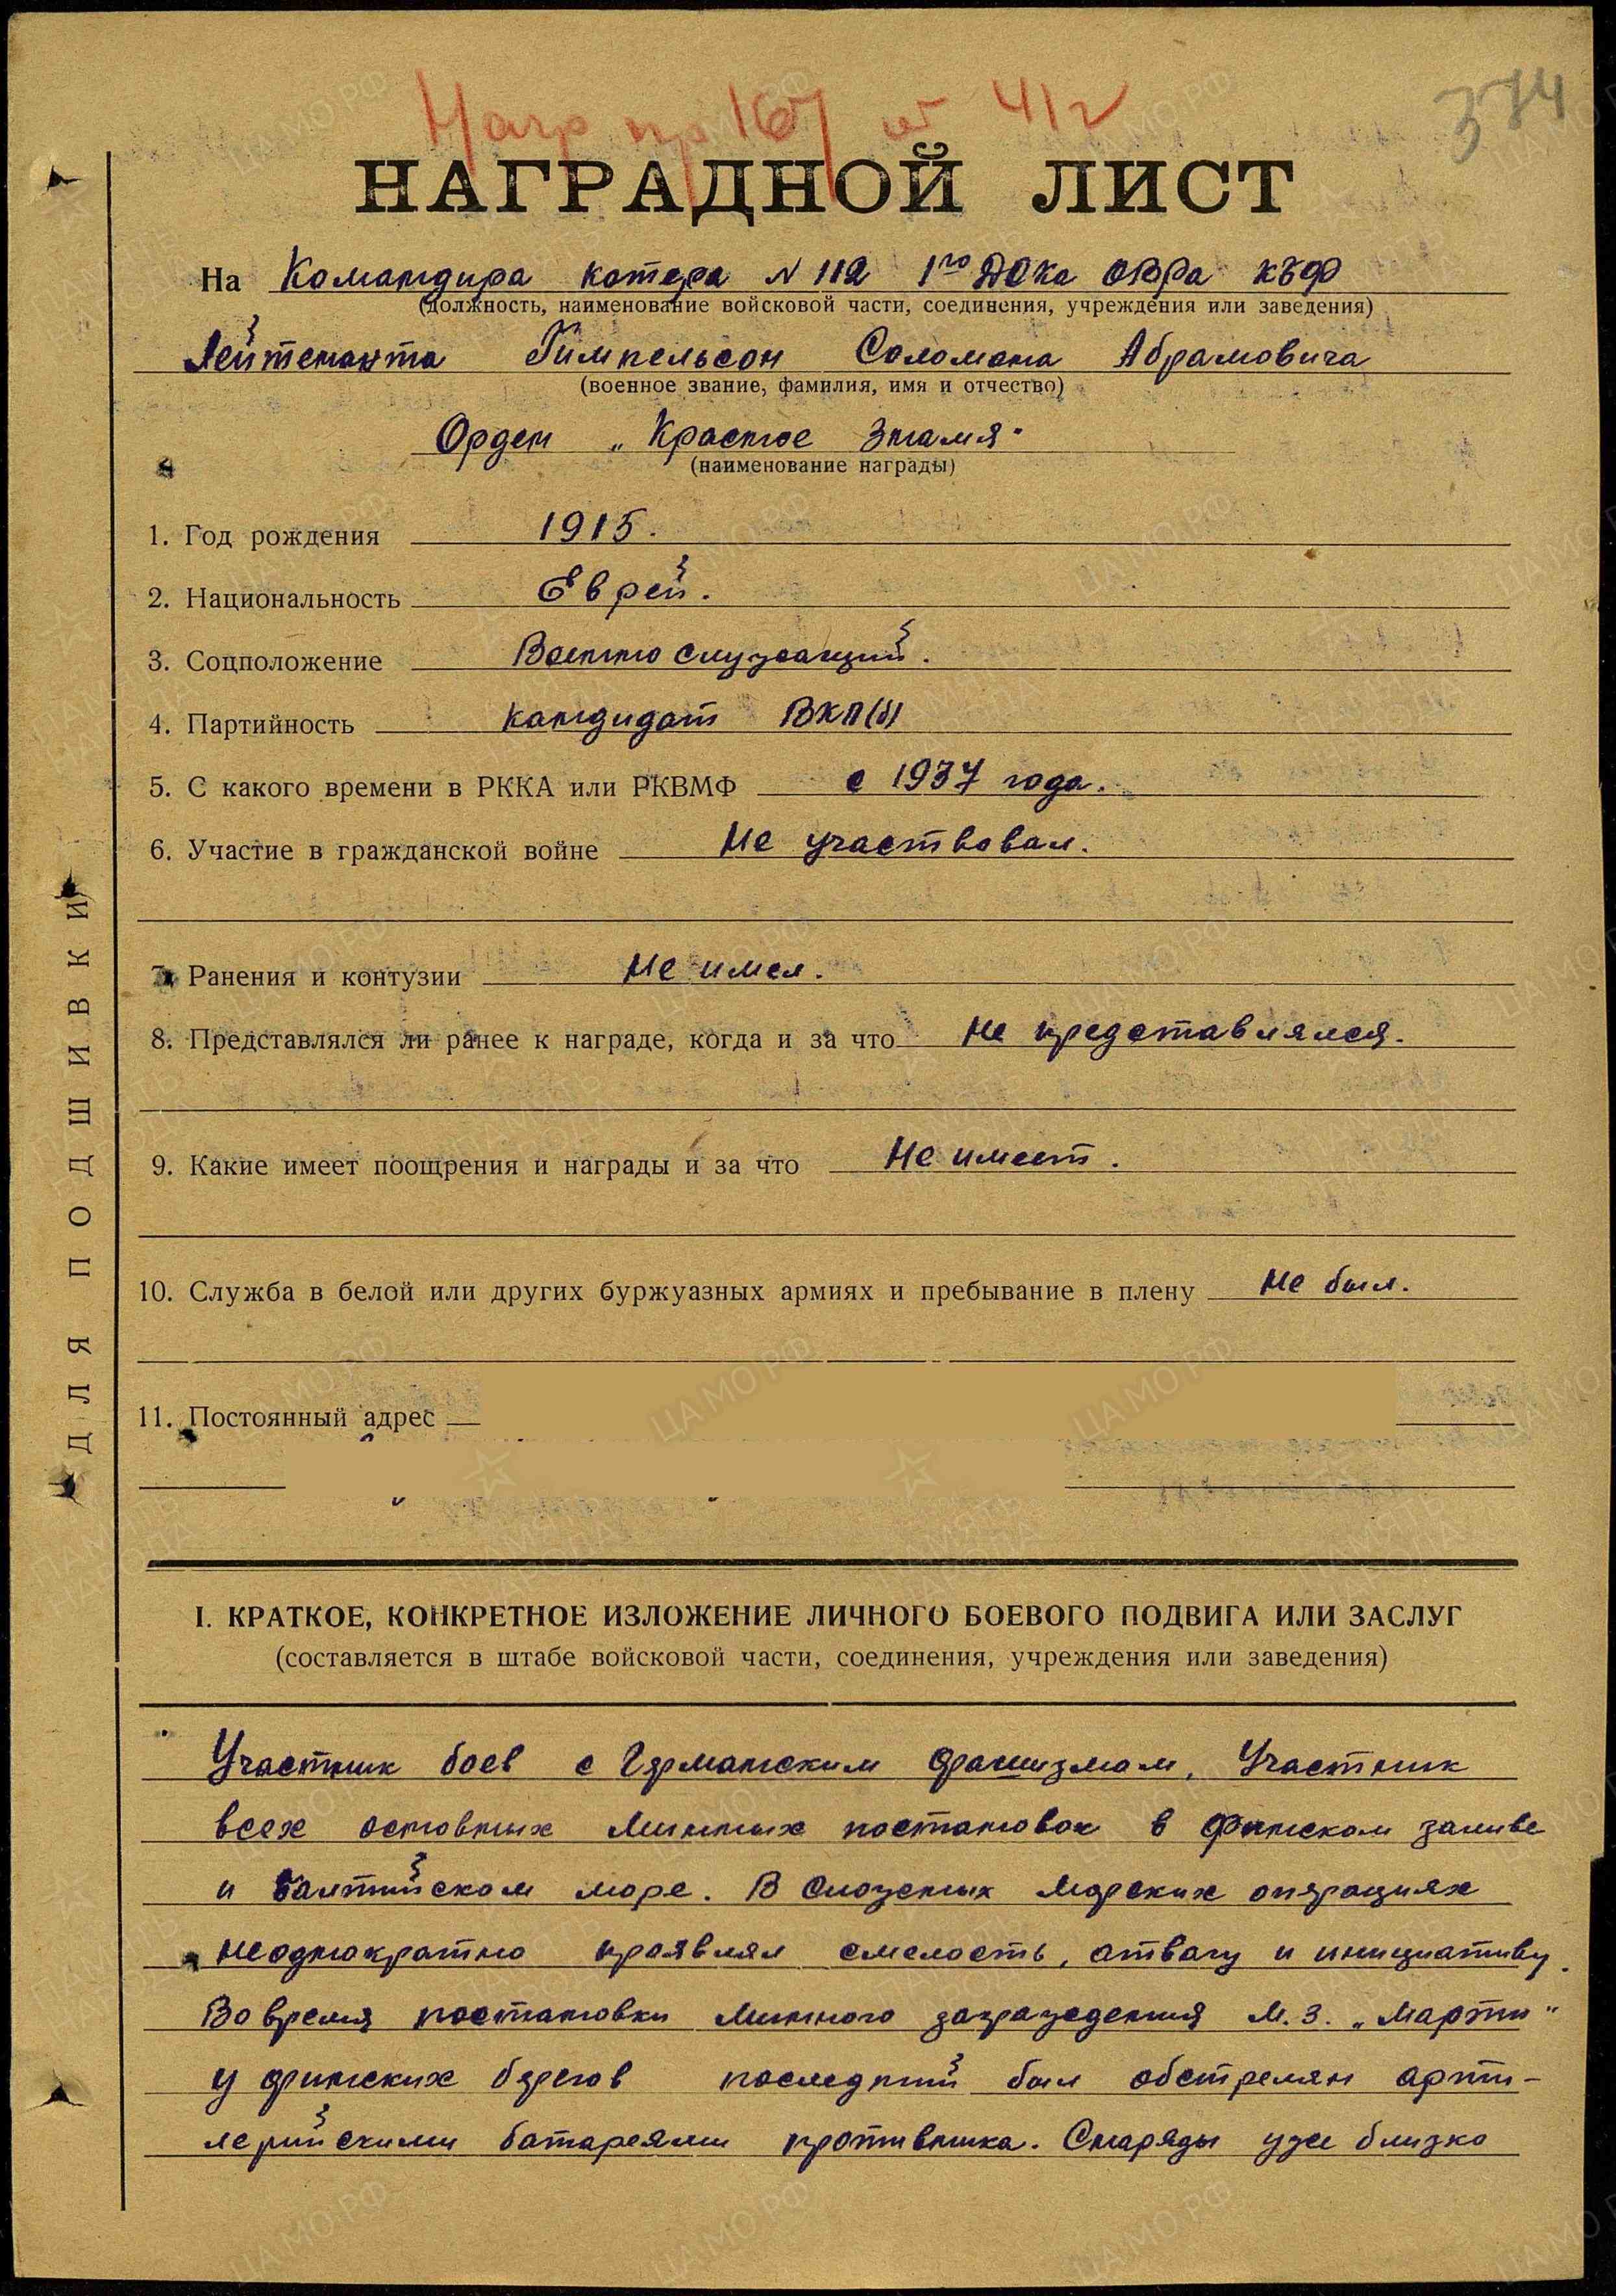 374
Нагр пр 167 от 4/12
НАГРАДНОЙ ЛИСТ
На Командира катера N 112 1го ДСКа ОВРа КБФ
(должность, наименование войсковой части, соединения, учреждения или заведения)
Лейтенанта Гимпельсон Соломона Абрамовича
(военное звание, фамилия, имя и отчество)
Орден „Красное Знамя"
(наименование награды)
1. Год рождения 1915.
2. Национальность Еврей.
3. Соцположение Военнослужащий.
4. Партийность кандидат ВКП(б)
5. С какого времени в РККА или РКВМФ с 1937 года.
6. Участие в гражданской войне Не участвовал.
7. Ранения и контузии Не имел.
8. Представлялся ли ранее к награде, когда и за что Не представлялся.
9. Какие имеет поощрения и награды и за что Не имеет.
10. Служба в белой или других буржуазных армиях и пребывание в плену Не был.
11. Постоянный адрес
ДЛЯ ПОДШИВКИ
I. КРАТКОЕ, КОНКРЕТНОЕ ИЗЛОЖЕНИЕ ЛИЧНОГО БОЕВОГО ПОДВИГА ИЛИ ЗАСЛУГ
(составляется в штабе войсковой части, соединения, учреждения или заведения)
Участник боев с Германским фашизмом. Участник
всех основных минных постановок в Финском заливе
и Балтийском море. В сложных морских операциях
неоднократно проявлял смелость, отвагу и инициативу.
Во время постановки минного заграждения М.З. „Марти"
у финских берегов последний был обстрелян арти-
лерийскими батареями противника. Снаряды уже близко
ЦА МО РФ
ПАМЯТЬ НАРОДА